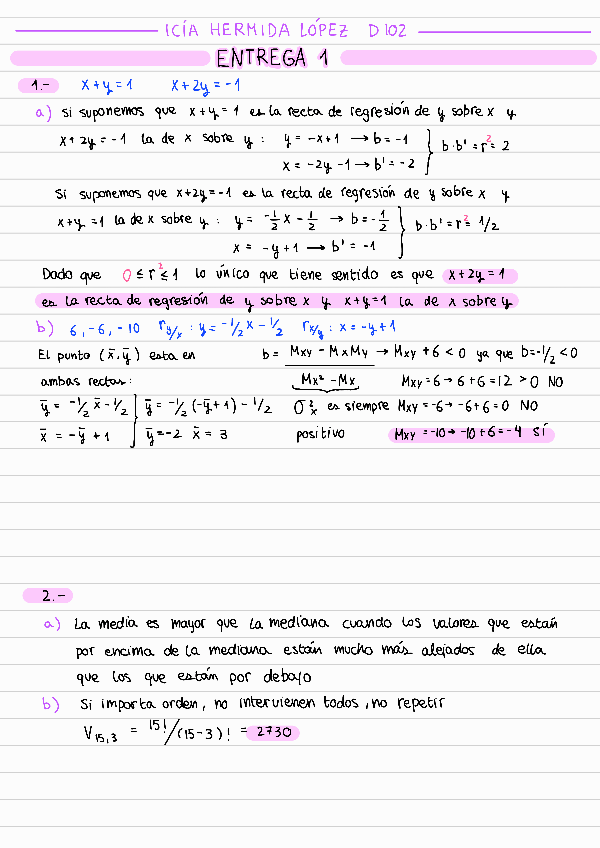 ICÍA HERMIDA LÓPEZ D102
ENTREGA 1
1.- x+y=1 x+2y=-1
a) si suponemos que x+y=1 es la recta de regresión de y sobre x y
x+2y=-1 la de x sobre y: y=-x+1 → b=-1
x=-2y-1 → b'=-2
b·b'=r²=2
Si suponemos que x+2y=-1 es la recta de regresión de y sobre x y
x+y=1 la de x sobre y: y=-1/2x-1/2 → b=-1/2
x=-y+1 → b'=-1
b·b'=r²=1/2
Dado que 0≤r²≤1 lo único que tiene sentido es que x+2y=1
es la recta de regresión de y sobre x y x+y=1 la de x sobre y
b) 6,-6,-10 r y/x: y=-1/2x-1/2 r x/y: x=-y+1
El punto (x̄,ȳ) esta en b= Mxy-MxMy → Mxy+6<0 ya que b=-1/2<0
ambas rectas: Mx²-Mx Mxy=6→6+6=12>0 NO
ȳ=-1/2x̄-1/2 ȳ=-1/2(-ȳ+1)-1/2 σ²x es siempre Mxy=-6→-6+6=0 NO
x̄=-ȳ+1 ȳ=-2 x̄=3 positivo Mxy=-10→-10+6=-4 SÍ
2.-
a) La media es mayor que la mediana cuando los valores que están
por encima de la mediana están mucho más alejados de ella
que los que están por debajo
b) Si importa orden, no intervienen todos, no repetir
V15,3 = 15!/(15-3)! = 2730